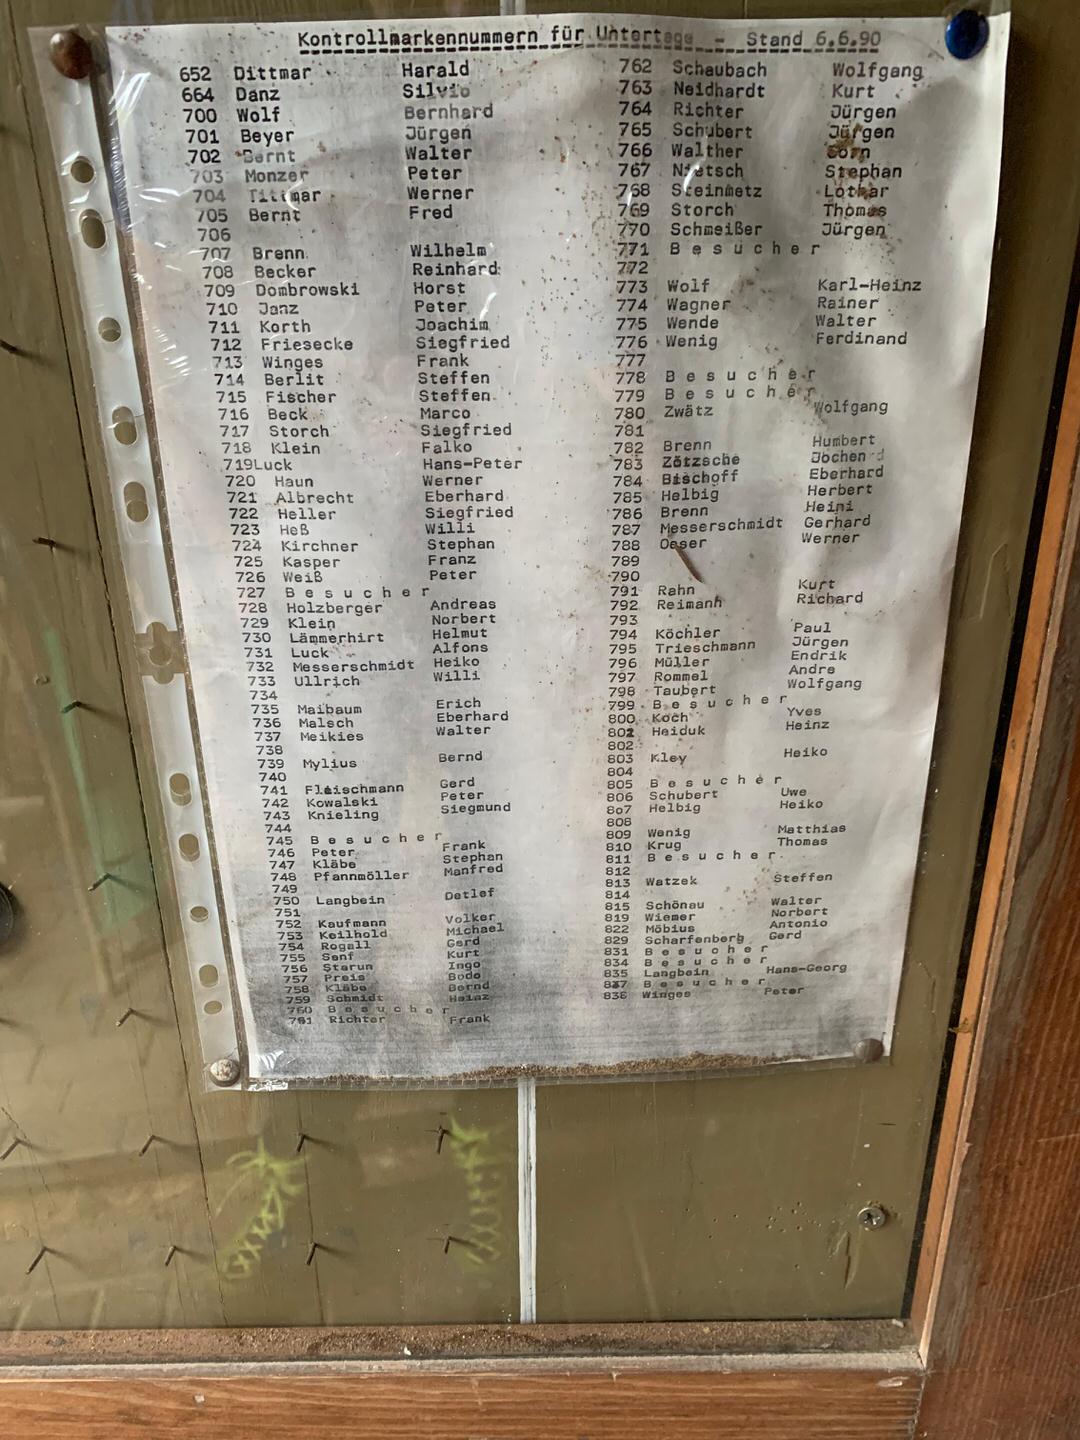 Kontrollmarkennummern für Untertage - Stand 6.6.90
652 Dittmar Harald
664 Danz Silvio
700 Wolf Bernhard
701 Beyer Jürgen
702 Bernt Walter
703 Monzer Peter
704 Dittmar Werner
705 Bernt Fred
706
707 Brenn Wilhelm
708 Becker Reinhard
709 Dombrowski Horst
710 Janz Peter
711 Korth Joachim
712 Friesecke Siegfried
713 Winges Frank
714 Berlit Steffen
715 Fischer Steffen
716 Beck Marco
717 Storch Siegfried
718 Klein Falko
719Luck Hans-Peter
720 Haun Werner
721 Albrecht Eberhard
722 Heller Siegfried
723 Heß Willi
724 Kirchner Stephan
725 Kasper Franz
726 Weiß Peter
727 B e s u c h e r
728 Holzberger Andreas
729 Klein Norbert
730 Lämmerhirt Helmut
731 Luck Alfons
732 Messerschmidt Heiko
733 Ullrich Willi
734
735 Maibaum Erich
736 Malsch Eberhard
737 Meikies Walter
738
739 Mylius Bernd
740
741 Fleischmann Gerd
742 Kowalski Peter
743 Knieling Siegmund
744
745 B e s u c h e r
746 Peter Frank
747 Kläbe Stephan
748 Pfannmöller Manfred
749
750 Langbein Detlef
751
752 Kaufmann Volker
753 Keilhold Michael
754 Rogall Gerd
755 Senf Kurt
756 Ingo
757 Preis Bodo
758 Kläbe Bernd
759 Schmidt Heinz
760 B e s u c h e r
761 Richter Frank
762 Schaubach Wolfgang
763 Neidhardt Kurt
764 Richter Jürgen
765 Schubert Jürgen
766 Walther
767 Nietsch Stephan
768 Steinmetz Lothar
769 Storch Thomas
770 Schmeißer Jürgen
771 B e s u c h e r
772
773 Wolf Karl-Heinz
774 Wagner Rainer
775 Wende Walter
776 Wenig Ferdinand
777
778 B e s u c h e r
779 B e s u c h e r
780 Zwätz Wolfgang
781
782 Brenn Humbert
783 Zötzsche Jochen
784 Bischoff Eberhard
785 Helbig Herbert
786 Brenn Heini
787 Messerschmidt Gerhard
788 Oeser Werner
789
790
791 Rahn Kurt
792 Reimann Richard
793
794 Köchler Paul
795 Trieschmann Jürgen
796 Müller Endrik
797 Rommel Andre
798 Taubert Wolfgang
799 B e s u c h e r
800 Koch Yves
801 Heiduk Heinz
802
803 Kley Heiko
804
805 B e s u c h e r
806 Schubert Uwe
8o7 Helbig Heiko
808
809 Wenig Matthias
810 Krug Thomas
811 B e s u c h e r
812
813 Watzek Steffen
814
815 Schönau Walter
819 Wiemer Norbert
822 Möbius Antonio
829 Scharfenberg Gerd
831 B e s u c h e r
834 B e s u c h e r
835 Langbein Hans-Georg
837 B e s u c h e r
838 Winges Peter